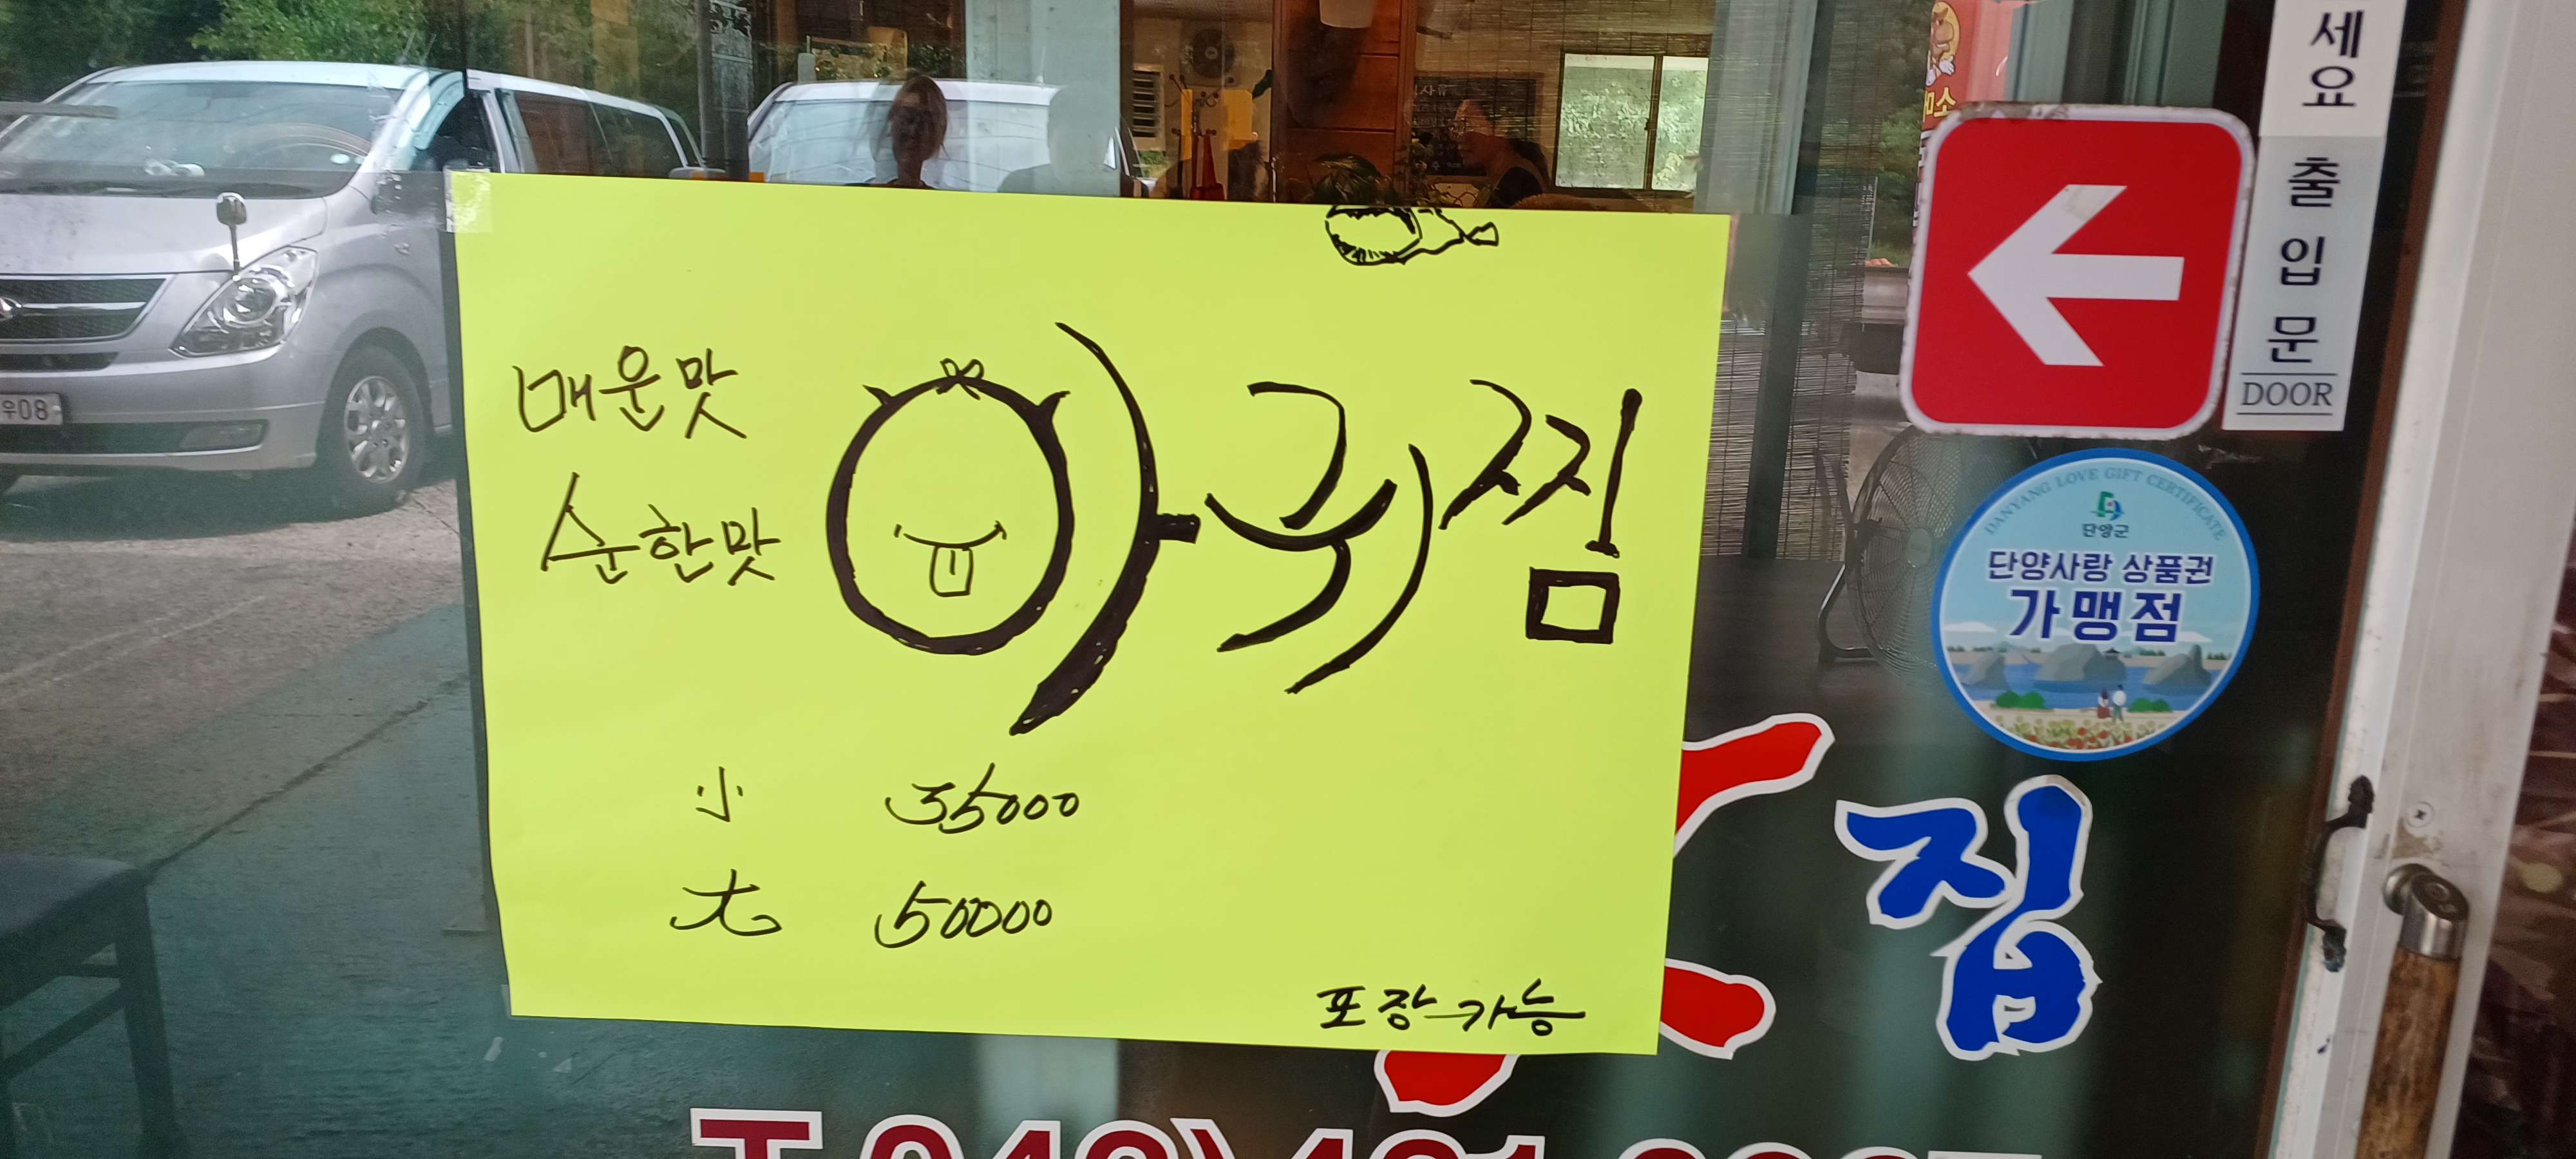 매운맛
순한맛
아구찜
小 35000
大 50000
포장가능
세요
출입문
DOOR
DANYANG LOVE GIFT CERTIFICATE
단양군
단양사랑 상품권
가맹점
짐
08